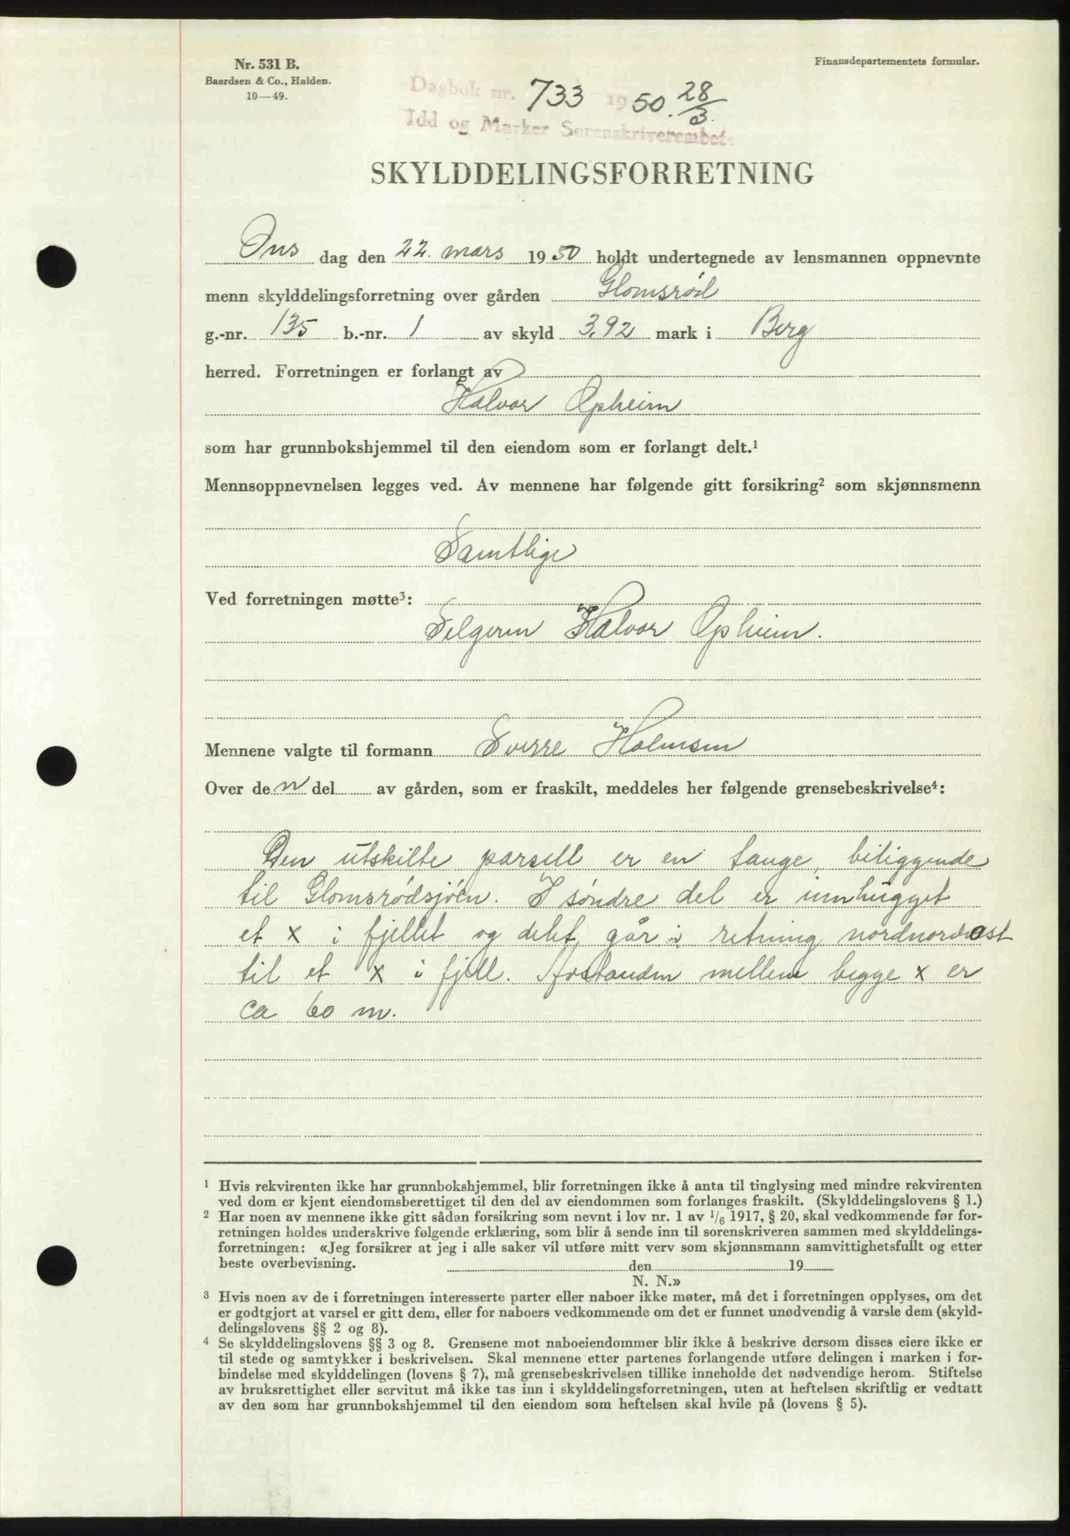 Nr. 531 B.
Baardsen & Co., Halden.
10—49.
Finansdepartementets formular.
Dagbok nr. 733 1950. 28/3.
Idd og Marker Sorenskriverembete
SKYLDDELINGSFORRETNING
Ons dag den 22. mars 1950 holdt undertegnede av lensmannen oppnevnte
menn skylddelingsforretning over gården Glomsrød
g.-nr. 135 b.-nr. 1 av skyld 3,92 mark i Berg
herred. Forretningen er forlangt av
Halvor Opheim
som har grunnbokshjemmel til den eiendom som er forlangt delt.¹
Mennsoppnevnelsen legges ved. Av mennene har følgende gitt forsikring² som skjønnsmenn
Samtlige
Ved forretningen møtte³:
Selgeren Halvor Opheim.
Mennene valgte til formann Sverre Holmsen
Over den del av gården, som er fraskilt, meddeles her følgende grensebeskrivelse⁴:
Den utskilte parsell er en tange, beliggende
til Glomsrødsjøen. I søndre del er innhugget
et x i fjellet og delet går i retning nordnordost
til et x i fjell. Avstanden mellem begge x er
ca 60 m.
¹ Hvis rekvirenten ikke har grunnbokshjemmel, blir forretningen ikke å anta til tinglysing med mindre rekvirenten
ved dom er kjent eiendomsberettiget til den del av eiendommen som forlanges fraskilt. (Skylddelingslovens § 1.)
² Har noen av mennene ikke gitt sådan forsikring som nevnt i lov nr. 1 av 1/6 1917, § 20, skal vedkommende før for-
retningen holdes underskrive følgende erklæring, som blir å sende inn til sorenskriveren sammen med skylddelings-
forretningen: «Jeg forsikrer at jeg i alle saker vil utføre mitt verv som skjønnsmann samvittighetsfullt og etter
beste overbevisning. den 19
N. N.»
³ Hvis noen av de i forretningen interesserte parter eller naboer ikke møter, må det i forretningen opplyses, om det
er godtgjort at varsel er gitt dem, eller for naboers vedkommende om det er funnet unødvendig å varsle dem (skyld-
delingslovens §§ 2 og 8).
⁴ Se skylddelingslovens §§ 3 og 8. Grensene mot naboeiendommer blir ikke å beskrive dersom disses eiere ikke er
til stede og samtykker i beskrivelsen. Skal mennene etter partenes forlangende utføre delingen i marken i for-
bindelse med skylddelingen (lovens § 7), må grensebeskrivelsen tillike inneholde det nødvendige herom. Stiftelse
av bruksrettighet eller servitut må ikke tas inn i skylddelingsforretningen, uten at heftelsen skriftlig er vedtatt
av den som har grunnbokshjemmel til den eiendom som heftelsen skal hvile på (lovens § 5).